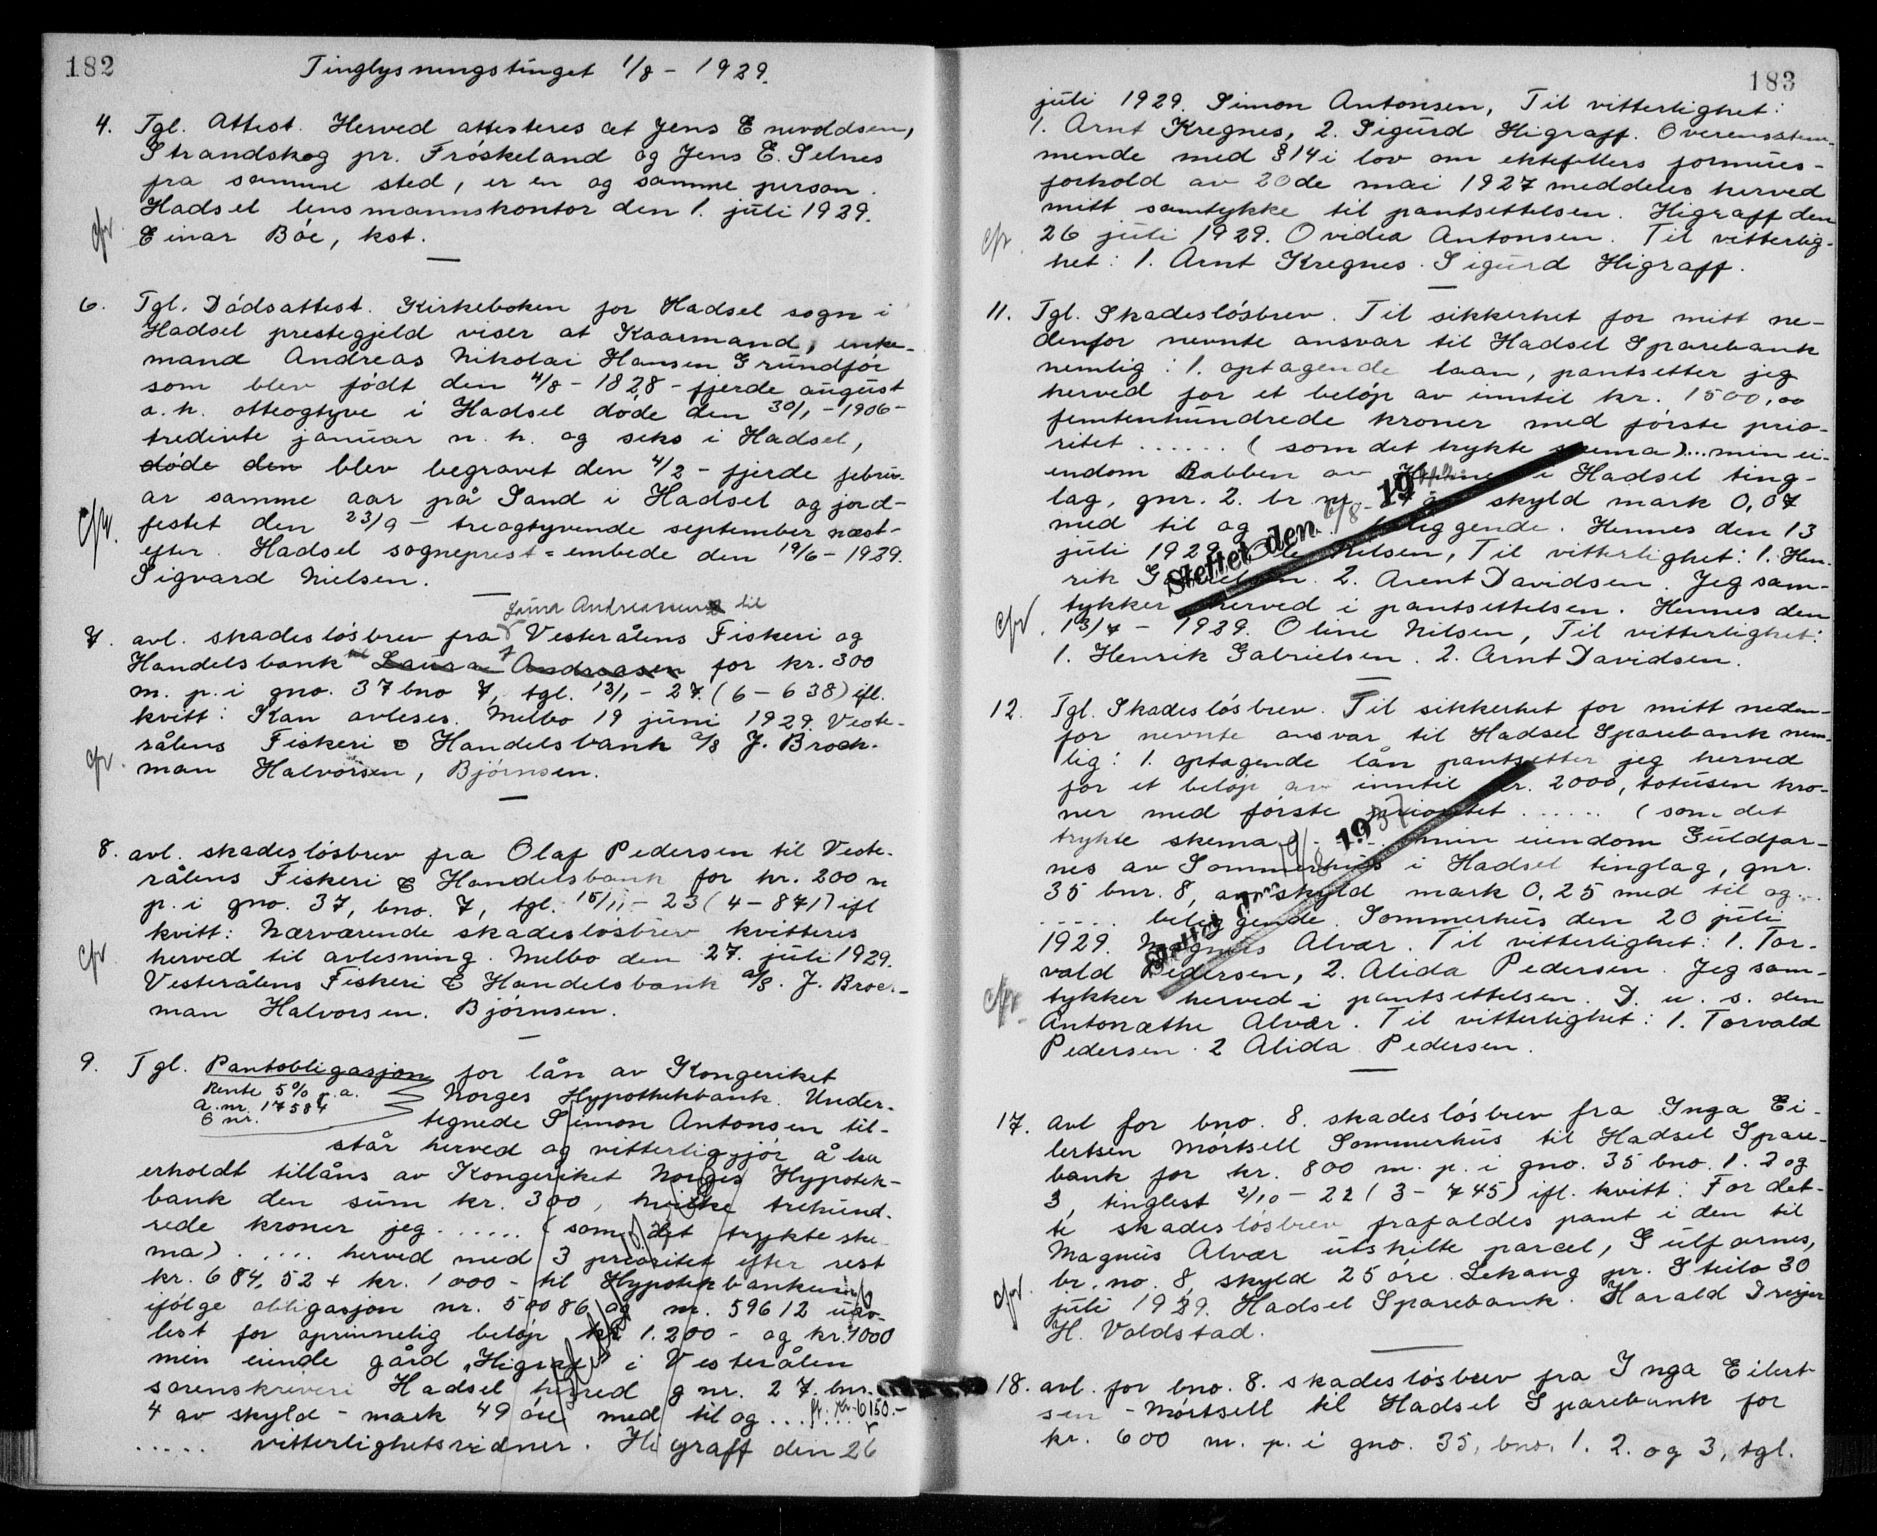 182
Tinglysningstinget 1/8 - 1929.
4. Tgl. Attest. Herved attesteres at Jens Enevoldsen,
Strandskog pr. Frøskeland og Jens E. Selnes
fra samme sted, er en og samme person.
Hadsel lensmannskontor den 1. juli 1929.
cfr. Einar Bøe, kst.
6. Tgl. Dødsattest. Kirkeboken for Hadsel sogn i
Hadsel prestegjeld viser at Kaarmand, enke-
mand Andreas Nikolai Hansen Grundfør
som blev født den 4/8 - 1828 - fjerde august
a. h. otteogtyve i Hadsel døde den 30/1 - 1906 -
tredivte januar n. h. og seks i Hadsel,
døde den blev begravet den 4/2 - fjerde febru-
ar samme aar på Sand i Hadsel og jord-
cfr. festet den 23/9 - treogtyvende september næst-
efter. Hadsel sogneprest-embede den 19/6 - 1929.
Sigvard Nielsen.
Laura Andreassen til
7. avl. skadesløsbrev fra Vesterålens Fiskeri og
Handelsbank til Laura Andreasen for kr. 300
m. p. i gno. 37 bno 7, tgl. 13/1 - 27. (6 - 638) ifl.
kvitt: Kan avleses. Melbo 19 juni 1929. Veste-
rålens Fiskeri & Handelsbank a/s J. Brock-
cfr. man Halvorsen, Bjørnsen.
8. avl. skadesløsbrev fra Olaf Pedersen til Veste-
rålens Fiskeri & Handelsbank for kr. 200 m
p. i gno. 37, bno. 7, tgl. 15/11 - 23 (4 - 871) ifl
kvitt: Nærværende skadesløsbrev kvitteres
cfr. herved til avlesning. Melbo den 27. juli 1929.
Vesterålens Fiskeri & Handelsbank a/s. J. Brock-
man Halvorsen. Bjørnsen.
9. Tgl. Pantobligasjon for lån av Kongeriket
Rente 5% p.a. Norges Hypothekbank. Under-
a. nr. 17584
tegnede Simon Antonsen til-
står herved og vitterliggjør å ha
erholdt tillåns av Kongeriket Norges Hypotek-
bank den sum kr. 300, hvilke trehund-
rede kroner jeg ...... (som det trykte ske-
ma) ..... herved med 3 prioritet efter rest
kr. 684,52 + kr. 1000 - til Hypotekbanken
ifølge obligasjon nr. 50086 og nr. 59612 utav-
lest for oprinnelig beløp kr 1.200 - og kr. 1000
min eiende gård "Higraf" i Vesterålen
sorenskriveri Hadsel herred g nr. 27. bnr.
4 av skyld - mark 49 øre med til og ... fr. kr. 6150.-
..... vitterlighetsvidner. Higraff den 26
183
juli 1929. Simon Antonsen, Til vitterlighet:
1. Arnt Kregnes, 2. Sigurd Higraff. Overensstem-
mende med § 14 i lov om ektefellers formues-
forhold av 20de mai 1927 meddeles herved
mitt samtykke til pantsettelsen. Higraff den
cfr. 26 juli 1929. Ovidia Antonsen. Til vitterlig-
het: 1. Arnt Kregnes. Sigurd Higraff.
11. Tgl. Skadesløsbrev. Til sikkerhet for mitt ne-
denfor nevnte ansvar til Hadsel Sparebank
nemlig: 1. optagende laan, pantsetter jeg
herved for et beløp av inntil kr. 1500,00
femtenhundrede kroner med første prio-
ritet ...... (som det trykte skema) ... min ei-
endom Babben av Hennes i Hadsel ting-
lag, gnr. 2. br nr skyld mark 0,07
med til og beliggende. Hennes den 13
juli 1929. Ole Nilsen, Til vitterlighet: 1. Hen-
rik Gabrielsen. 2. Arent Davidsen. Jeg sam-
tykker herved i pantsettelsen. Hennes den
cfr. 13/7 - 1929. Oline Nilsen, Til vitterlighet:
1. Henrik Gabrielsen. 2. Arnt Davidsen.
Slettet den 19
12. Tgl. Skadesløsbrev. Til sikkerhet for mitt neden-
for nevnte ansvar til Hadsel Sparebank nem-
lig: 1. optagende lån pantsetter jeg herved
for et beløp av inntil kr. 2000, totusen kro-
ner med første prioritet ...... (som det
trykte skema) ..... min eiendom Guldfar-
nes av Sommerhus i Hadsel tinglag, gnr.
35 bnr. 8, av skyld mark 0,25 med til og ..
..... beliggende. Sommerhus den 20 juli
1929. Magnus Alvær. Til vitterlighet: 1. Tor-
vald Pedersen, 2. Alida Pedersen. Jeg sam-
cfr. tykker herved i pantsettelsen. D. u. s. den
Antonæthe Alvær. Til vitterlighet: 1. Torvald
Pedersen. 2 Alida Pedersen.
Slettet den 1937
17. avl for bno. 8. skadesløsbrev fra Inga Ei-
lertsen Mørtsell Sommerhus til Hadsel Spare-
bank for kr. 800 m. p. i gno. 35 bno. 1. 2 og
3, tinglest 2/10 - 22 (3 - 745) ifl. kvitt: For det-
te skadesløsbrev frafaldes pant i den til
Magnus Alvær utskilte parcel, Gulfarnes,
br. no. 8, skyld 25 øre. Lekang pr. Steilo 30
cfr. juli 1929. Hadsel Sparebank. Harald Dreyer
H. Voldstad.
18. avl. for bno. 8. skadesløsbrev fra Inga Eilert-
sen - Mørtsell til Hadsel Sparebank for
kr. 600 m. p. i gno. 35, bno. 1. 2. og 3, tgl.